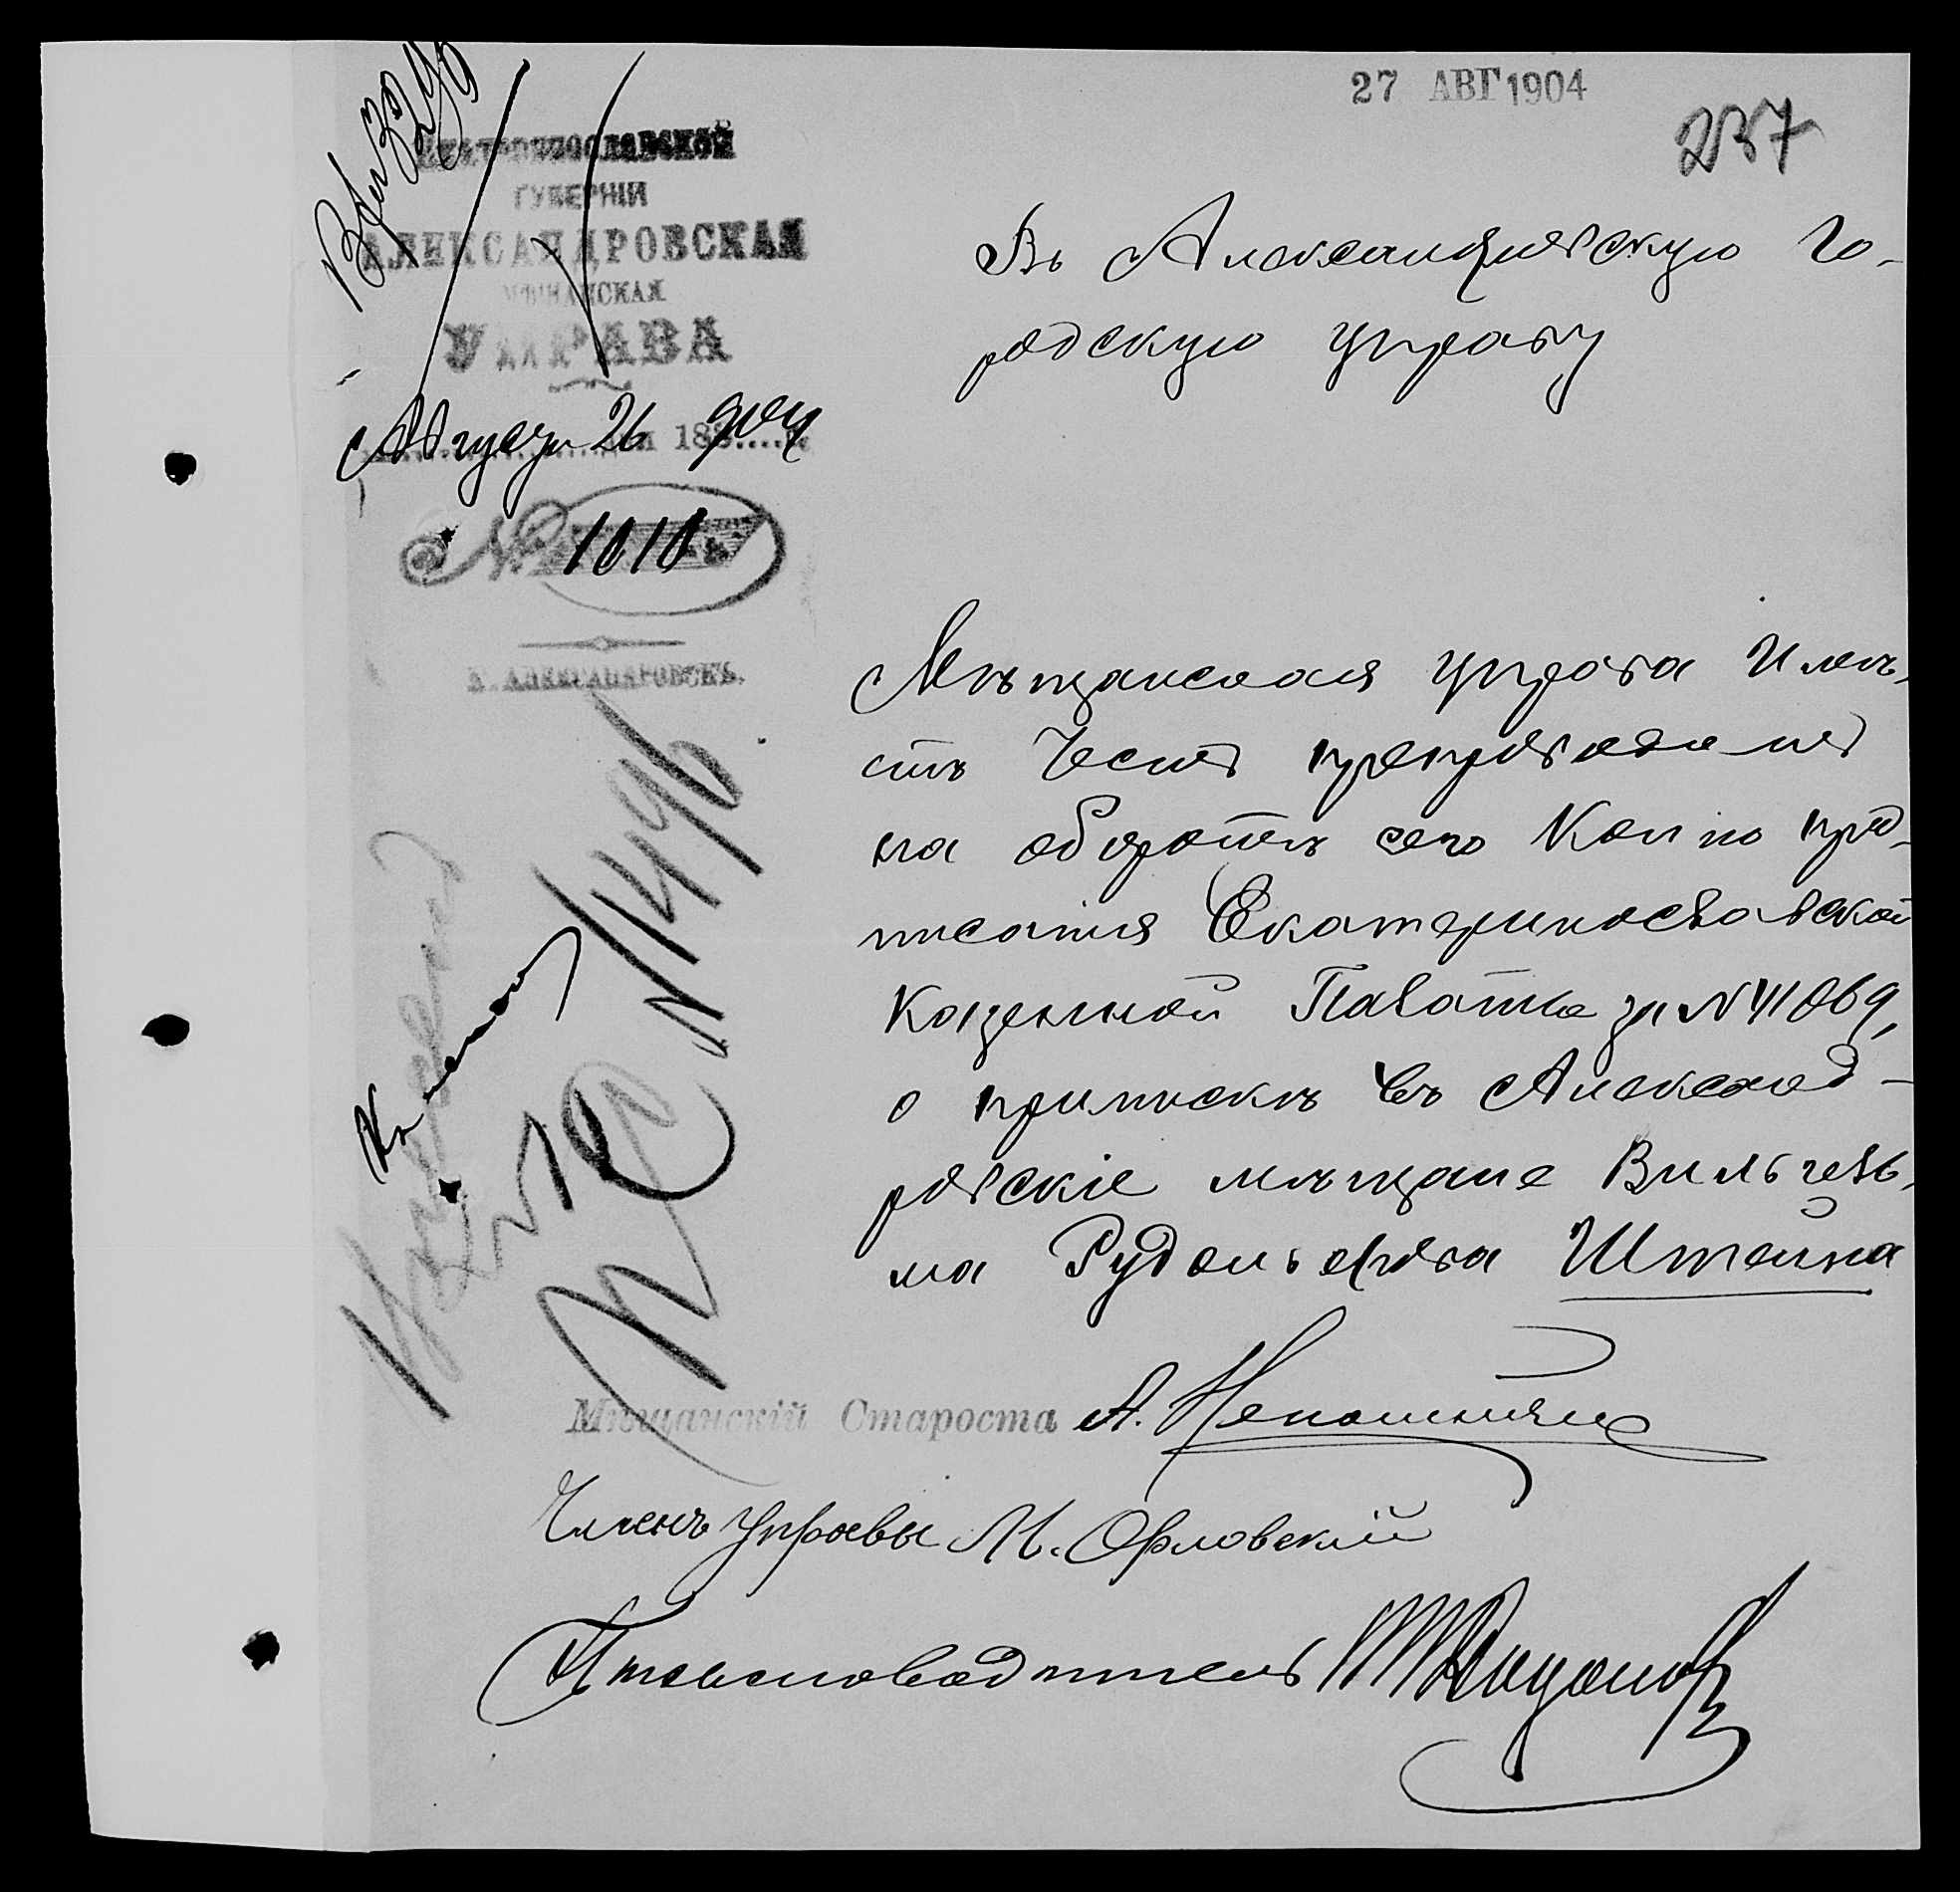 27 АВГ 1904
237
ЕКАТЕРИНОСЛАВСКОЙ
ГУБЕРНІИ
АЛЕКСАНДРОВСКАЯ
МѢЩАНСКАЯ
УПРАВА
Августа 26 дня 188
№ 1010
Г. АЛЕКСАНДРОВСКЪ.
Въ Александровскую Го-
родскую управу
Мѣщанская управа имѣ-
етъ честь препроводить
на оборотѣ сего копію пред-
писанія Екатеринославской
Казенной Палаты за № 41069,
о припискѣ въ Александ-
ровскіе мѣщане Вильгель-
ма Рудольфова Штейна
Мѣщанскій Староста А.
Членъ Управы М. Орловскій
Письмоводитель